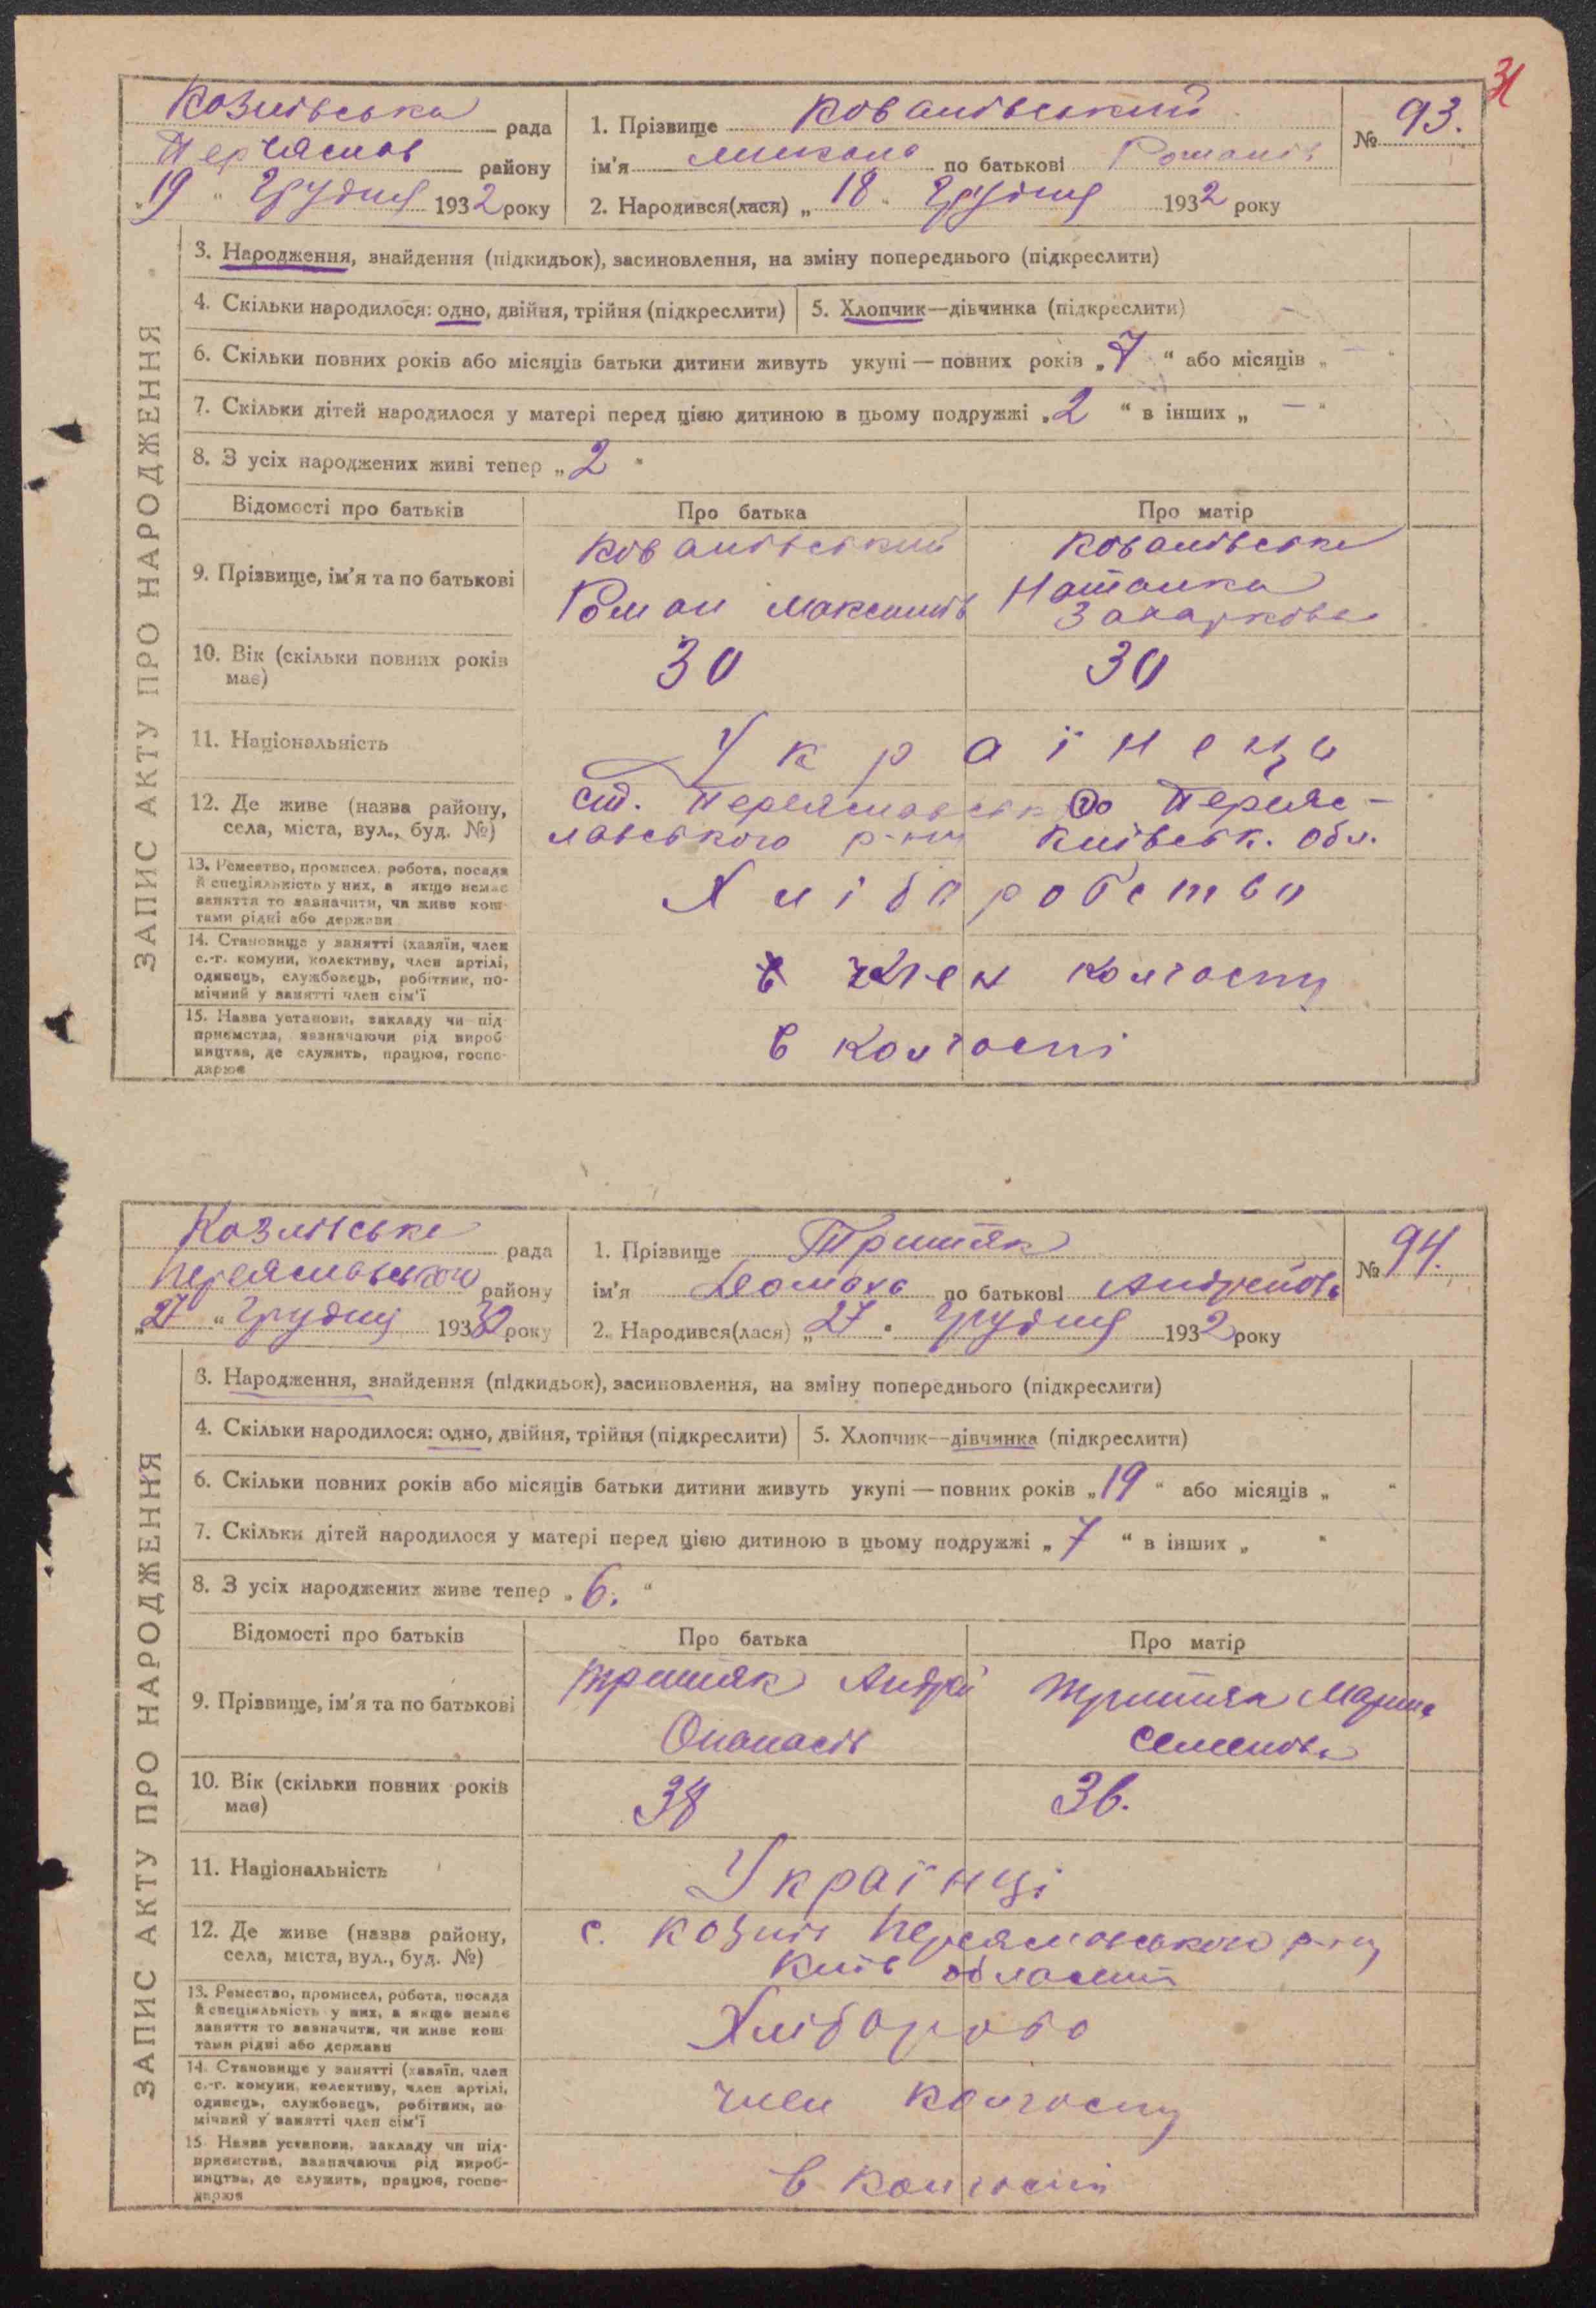 31
Козлівська рада
Переяслав району
„19“ Грудня 1932 року
1. Прізвище Ковалівський
№ 93.
ім'я Микола по батькові Романів
2. Народився(лася) „18“ Грудня 1932 року
ЗАПИС АКТУ ПРО НАРОДЖЕННЯ
3. Народження, знайдення (підкидьок), засиновлення, на зміну попереднього (підкреслити)
4. Скільки народилося: одно, двійня, трійня (підкреслити)
5. Хлопчик—дівчинка (підкреслити)
6. Скільки повних років або місяців батьки дитини живуть укупі — повних років „7“ або місяців „—“
7. Скільки дітей народилося у матері перед цією дитиною в цьому подружжі „2“ в інших „—“
8. З усіх народжених живі тепер „2“
Відомості про батьків
Про батька
Про матір
9. Прізвище, ім'я та по батькові
Ковалівський
Роман Максимів
Ковалівська
Наталка
Захаркова
10. Вік (скільки повних років має)
30
30
11. Національність
Українець
12. Де живе (назва району, села, міста, вул., буд. №)
ст. Переяславська Переяс-
лавського р-ну Київськ. обл.
13. Ремество, промисел, робота, посада й спеціяльність у них, а якщо немає заняття то зазначити, чи живе коштами рідні або держави
Хліборобство
14. Становище у занятті (хазяїн, член с.-г. комуни, колективу, член артілі, одинець, службовець, робітник, помічний у занятті член сім'ї
член колгоспу
15. Назва установи, закладу чи підприємства, зазначаючи рід виробництва, де служить, працює, господарює
в колгоспі
Козлівська рада
Переяславського району
„27“ Грудня 1932 року
1. Прізвище Тритяк
№ 94.
ім'я Домаха по батькові Андріївна
2. Народився(лася) „27“ Грудня 1932 року
ЗАПИС АКТУ ПРО НАРОДЖЕННЯ
3. Народження, знайдення (підкидьок), засиновлення, на зміну попереднього (підкреслити)
4. Скільки народилося: одно, двійня, трійня (підкреслити)
5. Хлопчик—дівчинка (підкреслити)
6. Скільки повних років або місяців батьки дитини живуть укупі — повних років „19“ або місяців „ “
7. Скільки дітей народилося у матері перед цією дитиною в цьому подружжі „7“ в інших „ “
8. З усіх народжених живе тепер „6.“
Відомості про батьків
Про батька
Про матір
9. Прізвище, ім'я та по батькові
Тритяк Андрій
Опанасів
Тритяк Марина
Семенова
10. Вік (скільки повних років має)
38
36.
11. Національність
Українці
12. Де живе (назва району, села, міста, вул., буд. №)
с. Козлів Переяславського р-ну
Київ області
13. Ремество, промисел, робота, посада й спеціяльність у них, а якщо немає заняття то зазначити, чи живе коштами рідні або держави
Хлібороб
14. Становище у занятті (хазяїн, член с.-г. комуни, колективу, член артілі, одинець, службовець, робітник, помічний у занятті член сім'ї
член колгоспу
15. Назва установи, закладу чи підприємства, зазначаючи рід виробництва, де служить, працює, господарює
в колгоспі